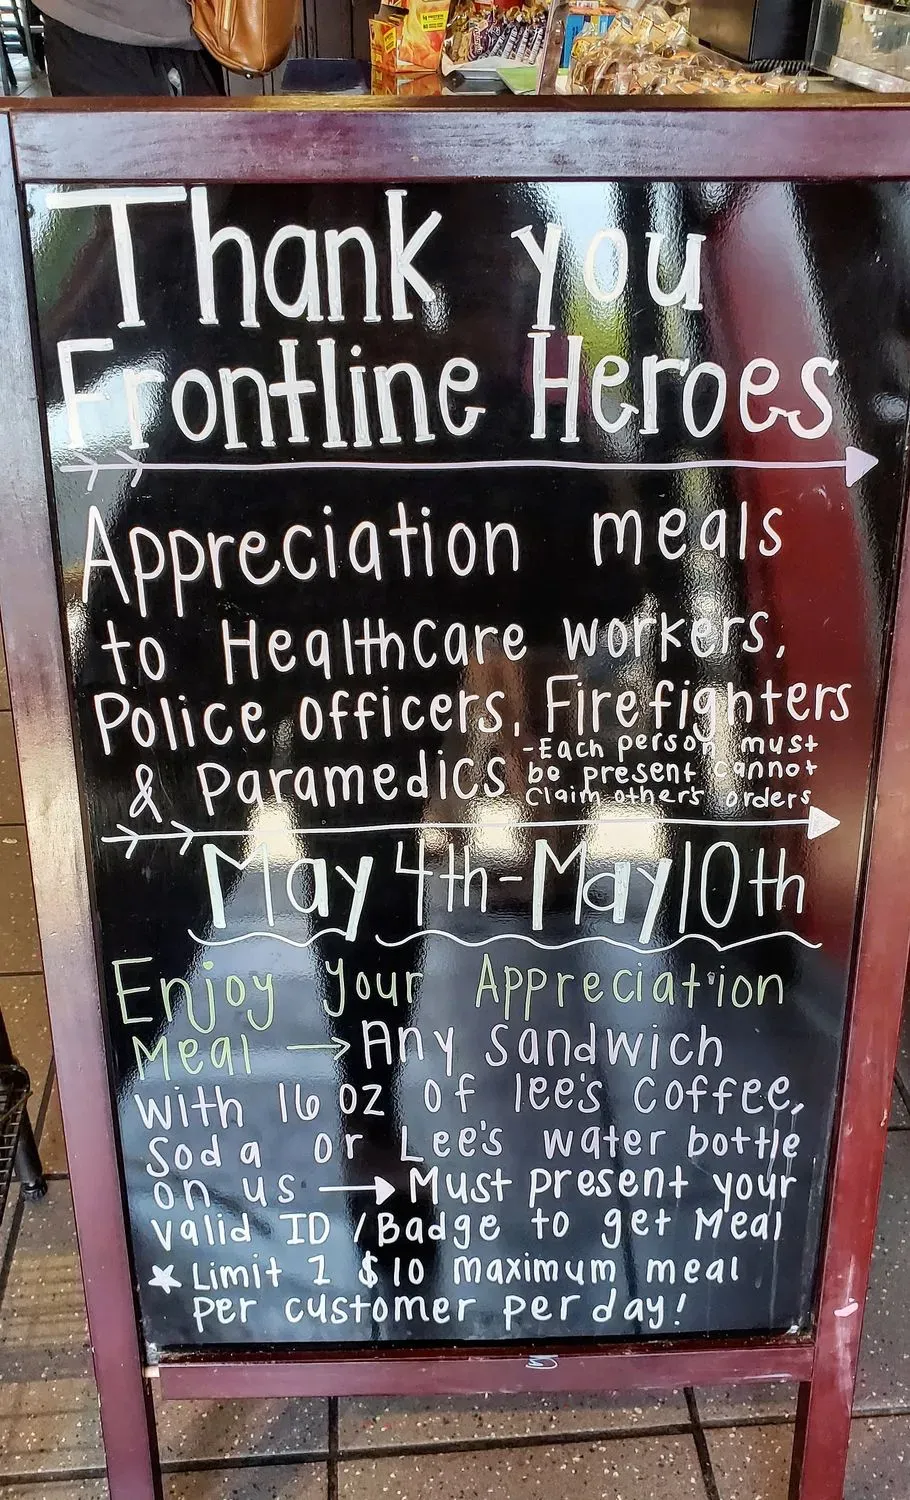 Thank you
Frontline Heroes
Appreciation meals
to Healthcare workers,
Police officers, Firefighters
& Paramedics
-Each person must
be present cannot
Claim other's orders
May 4th-May 10th
Enjoy your Appreciation
Meal → Any Sandwich
with 16 oz of lee's Coffee,
Soda or Lee's water bottle
on us → Must present your
Valid ID / Badge to get Meal
★ Limit 1 $10 maximum meal
per customer per day!